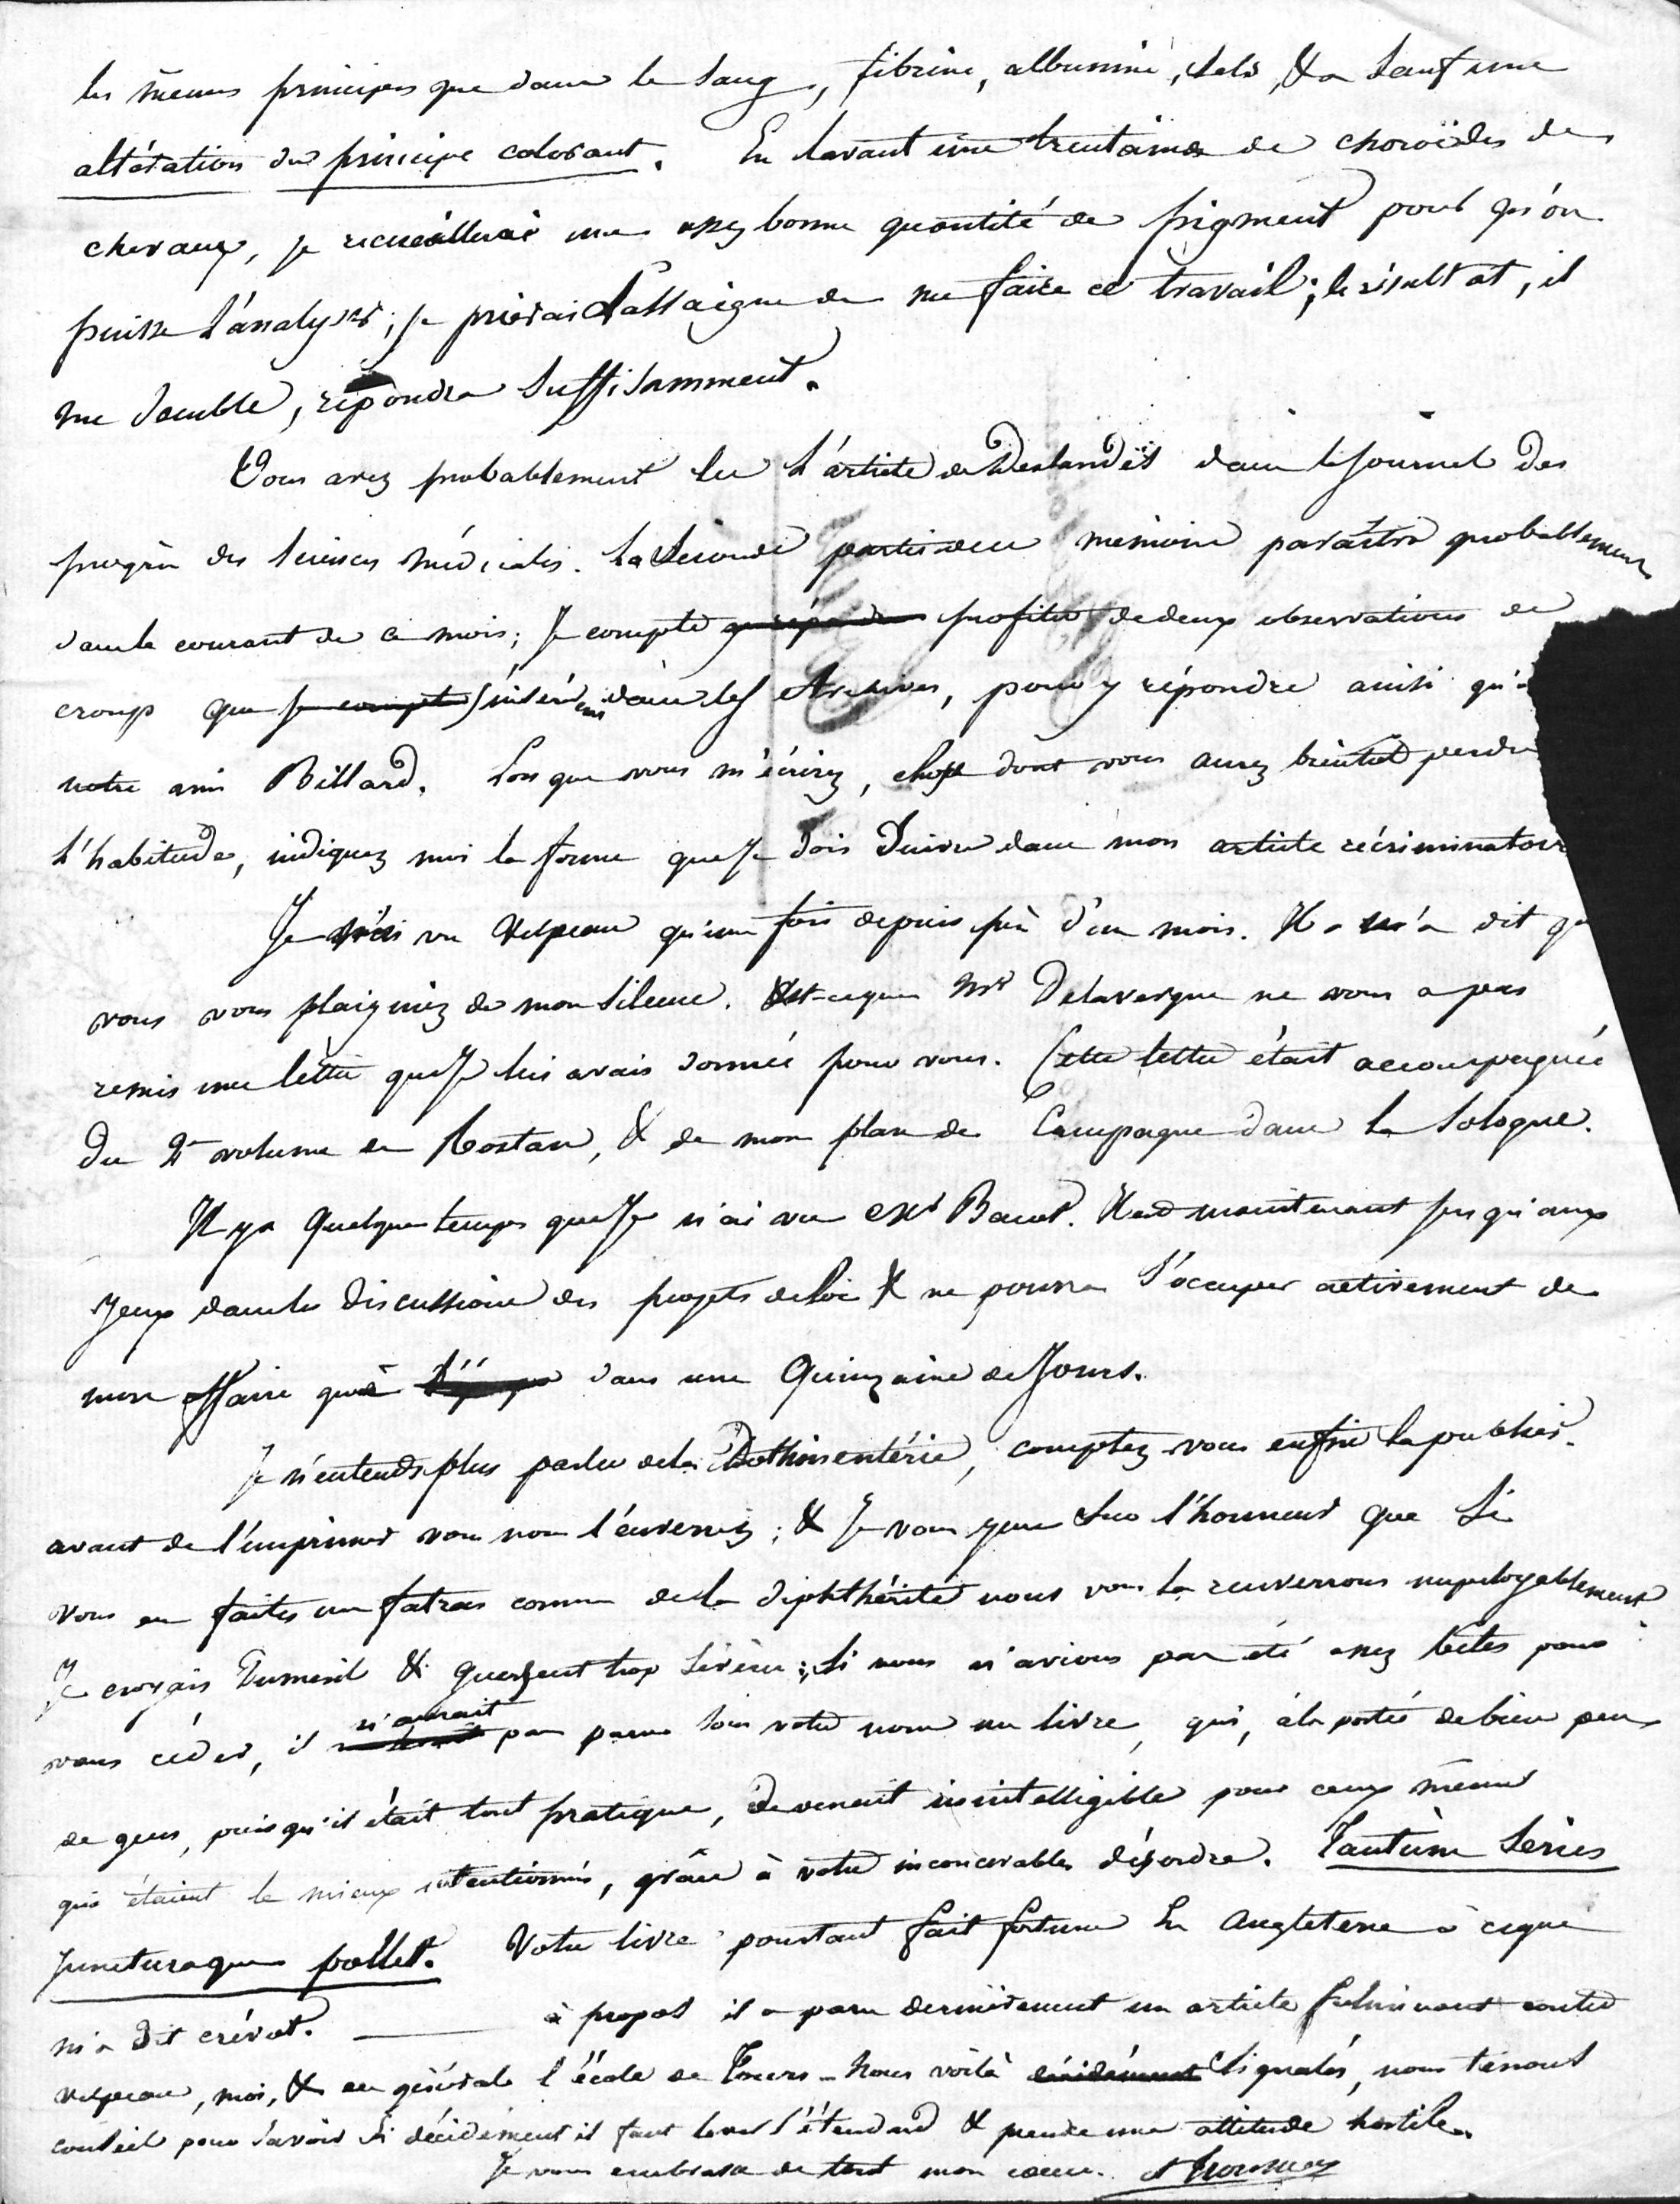 les mêmes principes que dans le sang, fibrine, albumine, sels, &a sauf une
altération du principe colorant. En lavant une trentaine de choroïdes de
chevaux, je recueillerai une assez bonne quantité de pigment pour qu'on
puisse l'analyser; je prierai Lassaigne de me faire ce travail; le résultat, il
me semble, répondra suffisamment.
Vous avez probablement lu l'article de Deslandes dans le Journal des
progrès des sciences médicales. La seconde partie du mémoire paraîtra probablement
dans le courant de ce mois; Je compte profiter de deux observations de
croup que j'insérerai dans les Archives, pour y répondre ainsi qu'à
notre ami Billard. Lorsque vous m'écrirez, chose dont vous aurez bientôt perdu
l'habitude, indiquez moi la forme que je dois suivre dans mon article récriminatoire
Je n'ai vu Velpeau qu'une fois depuis près d'un mois. Il m'a dit que
vous vous plaigniez de mon silence. Est-ce que Mr Delavergne ne vous a pas
remis une lettre que je lui avais donnée pour vous. Cette lettre était accompagnée
du 2e volume de Rostan, & de mon plan de Campagne dans la Sologne.
Il y a quelque temps que je n'ai vu Mr Bacot. Il est maintenant jusqu'aux
yeux dans la discussion des projets de loi & ne pourra s'occuper activement de
mon affaire que dans une quinzaine de Jours.
Je n'entends plus parler de la Dothinentérie, comptez-vous enfin la publier.
avant de l'imprimer vous nous l'enverrez; & je vous jure sur l'honneur que si
vous en faites un fatras comme de la diphthérite nous vous la renverrons impitoyablement.
Je croyais Dumeril & Guersent trop sévères; si nous n'avions pas été assez bêtes pour
vous céder, il n'aurait pas paru sous votre nom un livre, qui, à la portée de bien peu
de gens, puisqu'il était tout pratique, devenait inintelligible pour ceux même
qui étaient le mieux intentionnés, grâce à votre inconcevable désordre. Tantùm series
juncturaque pollet. Votre livre pourtant fait fortune en Angleterre à ce que
m'a dit crévot. — à propos il a paru dernièrement un article fulminant contre
velpeau, moi, & en général l'école de Tours - Nous voilà signalés, nous tenons
conseil pour savoir si décidément il faut lever l'étendard & prendre une attitude hostile.
Je vous embrasse de tout mon cœur. A Trousseau